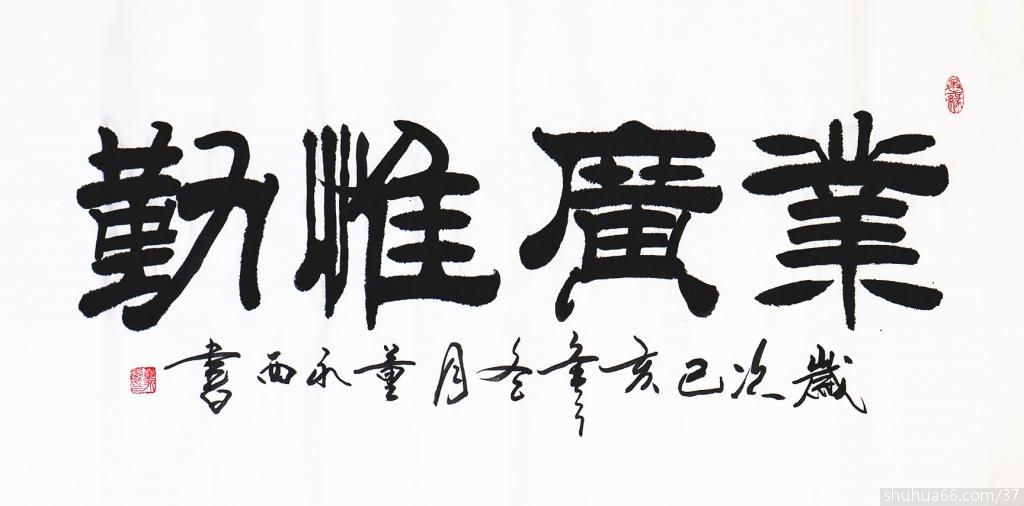 業廣惟勤
歲次己亥年冬月董永西書
shuhua66.com/37